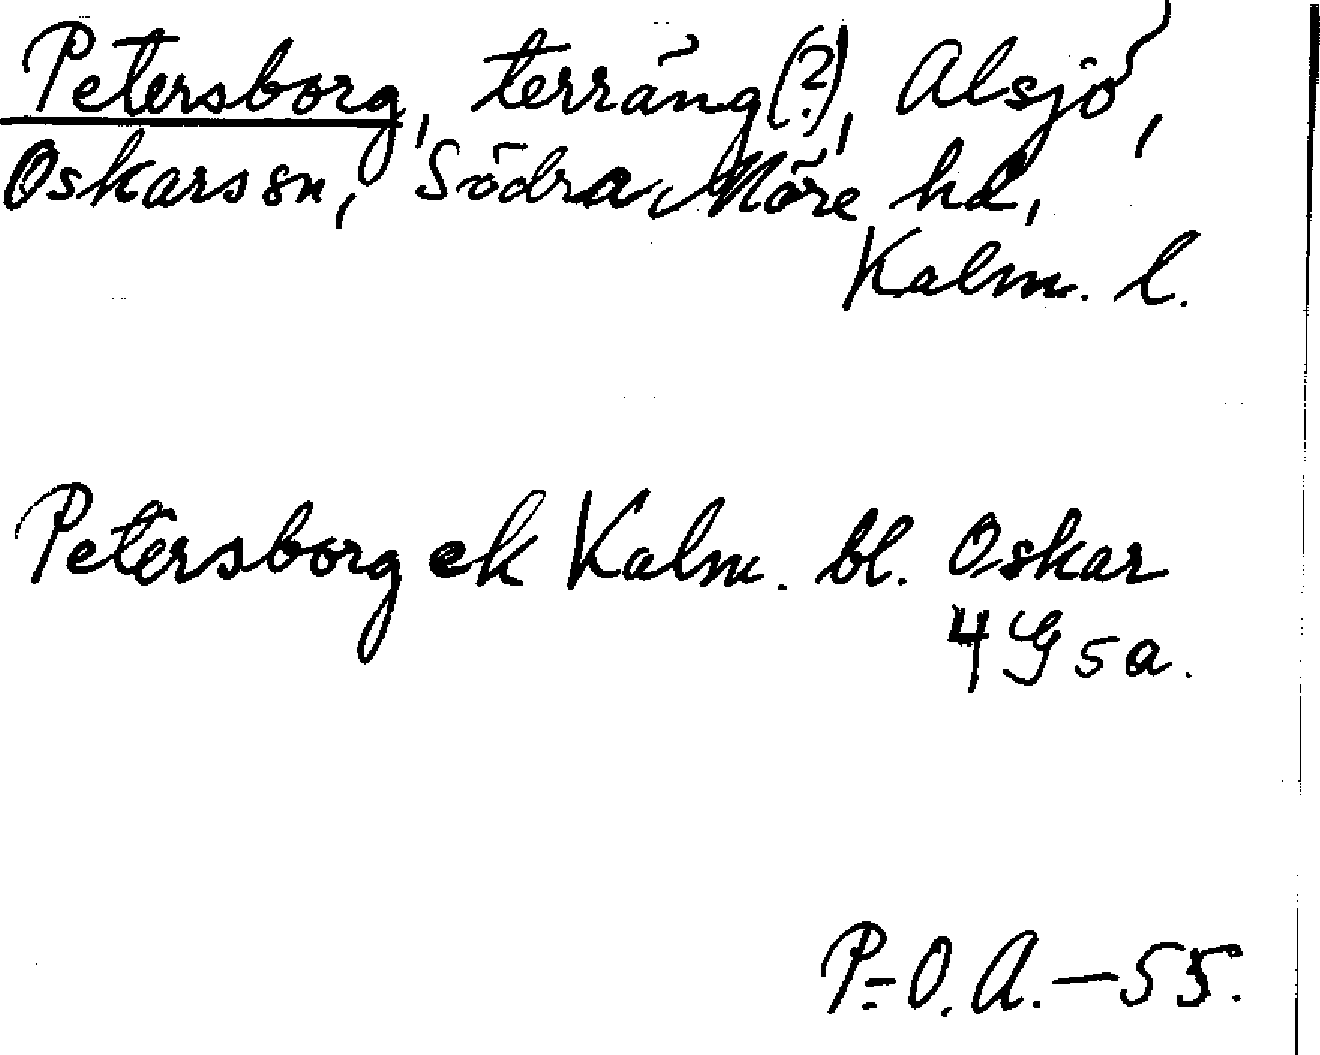 Petersborg, terräng(?), Alsjö,
Oskars sn, Södra Möre hd,
Kalm. l.
Petersborg ek Kalm. bl. Oskar
4G5a.
P.-O. A. — 55.